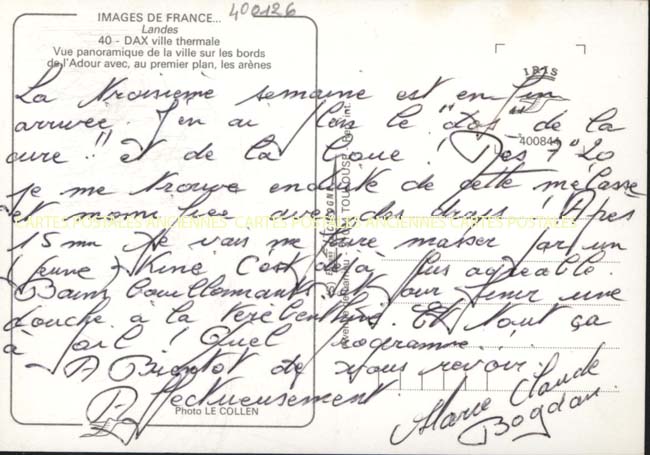 400126
IMAGES DE FRANCE...
Landes
40 - DAX ville thermale
Vue panoramique de la ville sur les bords
de l'Adour avec, au premier plan, les arènes
IRIS
400844
La troisième semaine est en fin
arrivée. J'en ai plein le "dos" de la
cure !! et de la boue ! Dès 7 h 20
je me trouve enduite de cette mélasse
et momifiée dans des draps ! Après
15 mn je vais me faire masser par un
jeune Kiné c'est déjà plus agréable.
Bain bouillonnant et pour finir une
douche à la térébenthine. Et tout ça
à poil ! Quel programme...
A Bientôt de vous revoir.
Affectueusement
Marie Claude
Bogdan
Photo LE COLLEN
TOULOUSE
CARTES POSTALES ANCIENNES CARTES POSTALES ANCIENNES CARTES POSTALES